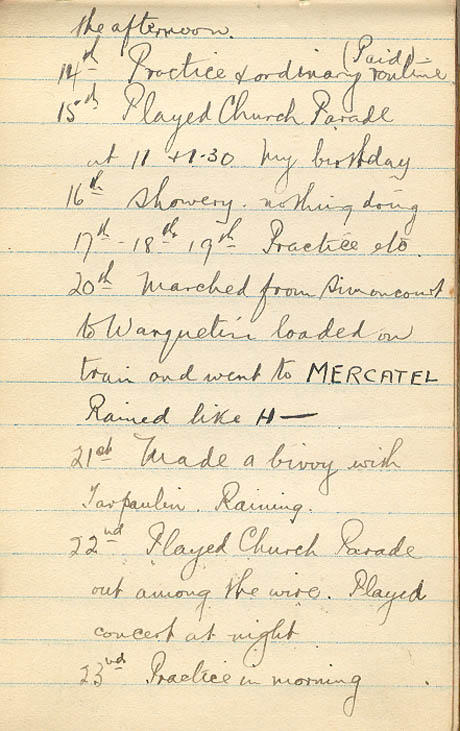 the afternoon.
(Paid)
14th Practice & ordinary routine
15th Played Church Parade
at 11 & 1-30 My birthday
16th Showery. nothing doing
17th - 18th 19th Practice etc.
20th Marched from Simoncourt
to Warquetin loaded on
train and went to MERCATEL
Rained like H—
21st Made a bivvy with
Tarpaulin. Raining.
22nd Played Church Parade
out among the wire. Played
concert at night
23rd Practice in morning